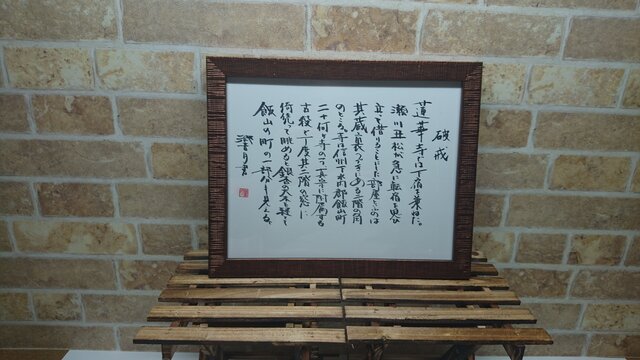 破戒
蓮華寺では下宿を兼ねた。
瀬川丑松が急に転宿を思ひ
立つて借りることにした部屋といふのは
其蔵裏つづきにある二階の角
のところ。寺は信州下水内郡飯山町
二十何ヶ寺の一つ真宗に附属する
古刹で丁度其二階の窓に
倚凭つて眺めると銀杏の大木を経て
飯山の町の一部分も見える。